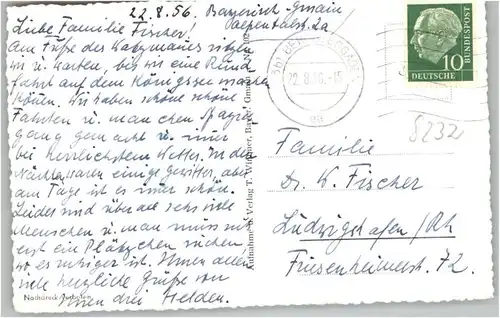 22.8.56. Bayerisch-Gmain,
Alpentalstr. 2a
Liebe Familie Fischer!
Am Fuße des Watzmanns sitzen
wir u. warten, bis wir eine Rund
fahrt auf dem Königssee machen
können. Wir haben schöne
Fahrten u. manchen Spazier
gang gemacht u. nur
bei herrlichstem Wetter. In den
Nächten waren einige Gewitter, aber
am Tage ist es immer schön.
Leider sind überall sehr viele
Menschen u. man muss
erst ein Plätzchen suchen
wo es ruhiger ist. Ihnen allen
viele herzliche Grüße von
Ihren drei Helden.
Nachdruck verboten
Aufnahme u. Verlag T. Wittmer, Bayr. Gmain
22.8.56.-15
10
DEUTSCHE
BUNDESPOST
8232
Familie
Dr. W. Fischer
Ludwigshafen/Rh
Friesenheimerstr. 72.